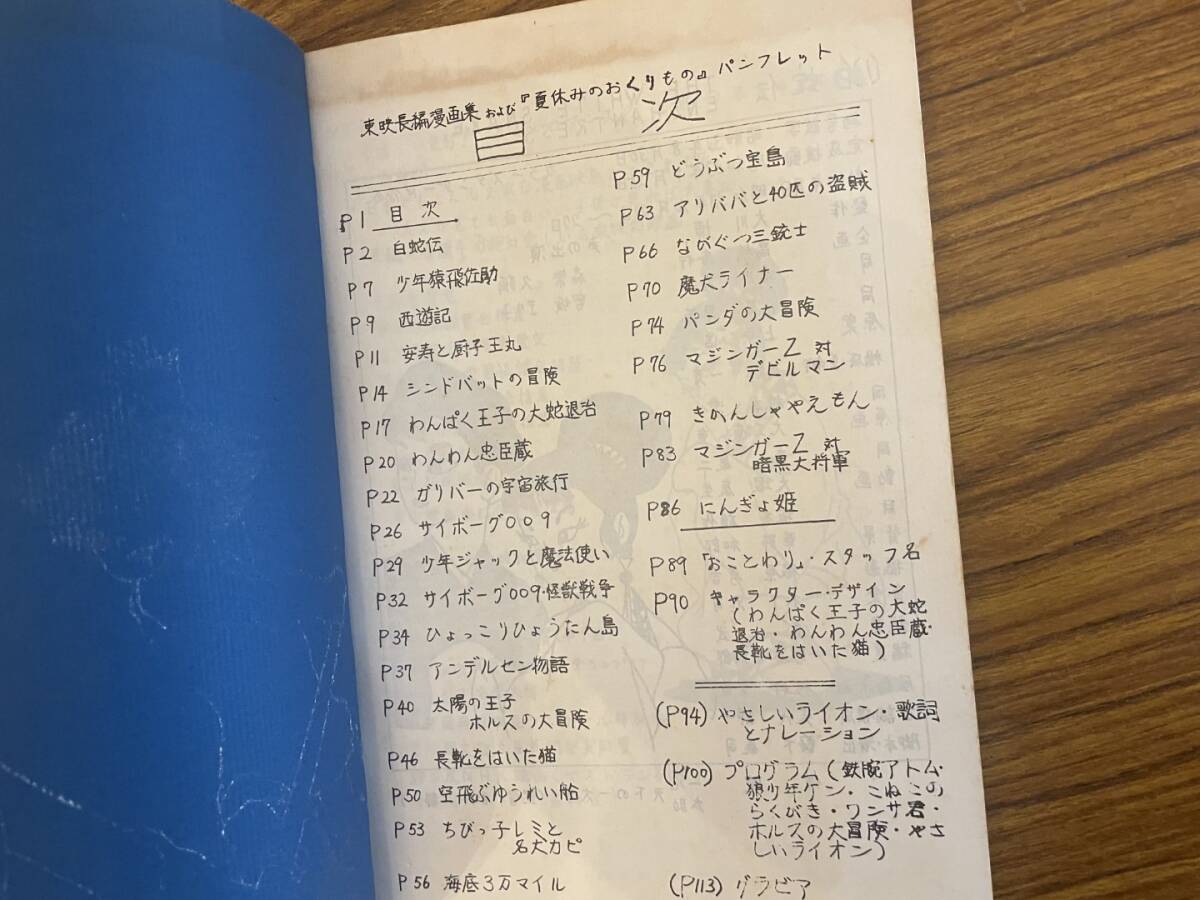 東映長編漫画集および『夏休みのおくりもの』パンフレット
目次
P1 目次
P2 白蛇伝
P7 少年猿飛佐助
P9 西遊記
P11 安寿と厨子王丸
P14 シンドバットの冒険
P17 わんぱく王子の大蛇退治
P20 わんわん忠臣蔵
P22 ガリバーの宇宙旅行
P26 サイボーグ009
P29 少年ジャックと魔法使い
P32 サイボーグ009・怪獣戦争
P34 ひょっこりひょうたん島
P37 アンデルセン物語
P40 太陽の王子
ホルスの大冒険
P46 長靴をはいた猫
P50 空飛ぶゆうれい船
P53 ちびっ子レミと
名犬カピ
P56 海底3万マイル
P59 どうぶつ宝島
P63 アリババと40匹の盗賊
P66 ながぐつ三銃士
P70 魔犬ライナー
P74 パンダの大冒険
P76 マジンガーZ 対
デビルマン
P79 きかんしゃやえもん
P83 マジンガーZ 対
暗黒大将軍
P86 にんぎょ姫
P89 「おことわり」・スタッフ名
P90 キャラクター・デザイン
(わんぱく王子の大蛇
退治・わんわん忠臣蔵・
長靴をはいた猫)
(P94) やさしいライオン・歌詞
とナレーション
(P100) プログラム(鉄腕アトム・
狼少年ケン・こねこの
らくがき・ワンサ君・
ホルスの大冒険・やさ
しいライオン)
(P113) グラビア